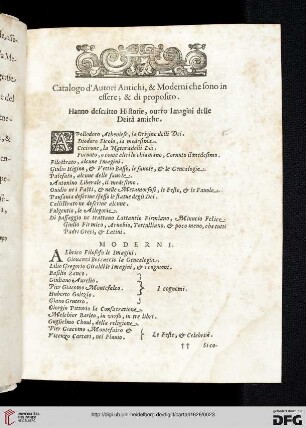 Catalogo d'Autori Antichi, & Moderni che sono in
essere, & di proposito.
Hanno descritto Historie, ouero Imagini delle
Deità antiche.
Apollodoro Atheniese, la Origine delli Dei.
Diodoro Siculo, la medesima.
Cicerone, la Natura delli Dei.
Furnuto, o come altri lo chiamano, Cornuto il medesimo.
Filostrato, alcune Imagini.
Giulio Higino, & le fauole, & le Genealogie.
Palefato, alcune delle fauole.
Antonino Liberale, il medesimo.
Ouidio nei Fasti, & nelle Metamorfosi, le Feste, & le Fauole.
Pausania descriue spesso le statue degli Dei.
Callistrato ne descriue alcune.
Fulgentio, le Allegorie.
Di passaggio ne trattano Lattantio Firmiano, Minutio Felice
Giulio Firmico, Arnobio, Tertulliano, & poco meno, che tutti
Padri Greci, & Latini.
MODERNI.
Albrico Filosofo le Imagini.
Giouanni Boccaccio la Genealogia.
Lilio Gregorio Giraldi le Imagini, & cognomi.
Basilio Zanco.
Giuliano Aurelio.
Pier Giacomo Montefalco.
Huberto Golezio
Giano Grutero.
I cognomi.
Giorgio Pittorio la
Melchior Barleo, in versi, in tre libri.
Guglielmo Choul, della religione
Pier Giacomo Montefalco &
Vicenzo Cartari, nel Flauio.
Le Feste, & Celebrità
††
http://digi.ub.uni-heidelberg.de/diglit/cartari1626/0023
UNIVERSITÄTS-
BIBLIOTHEK
HEIDELBERG
gefördert durch die
DFG